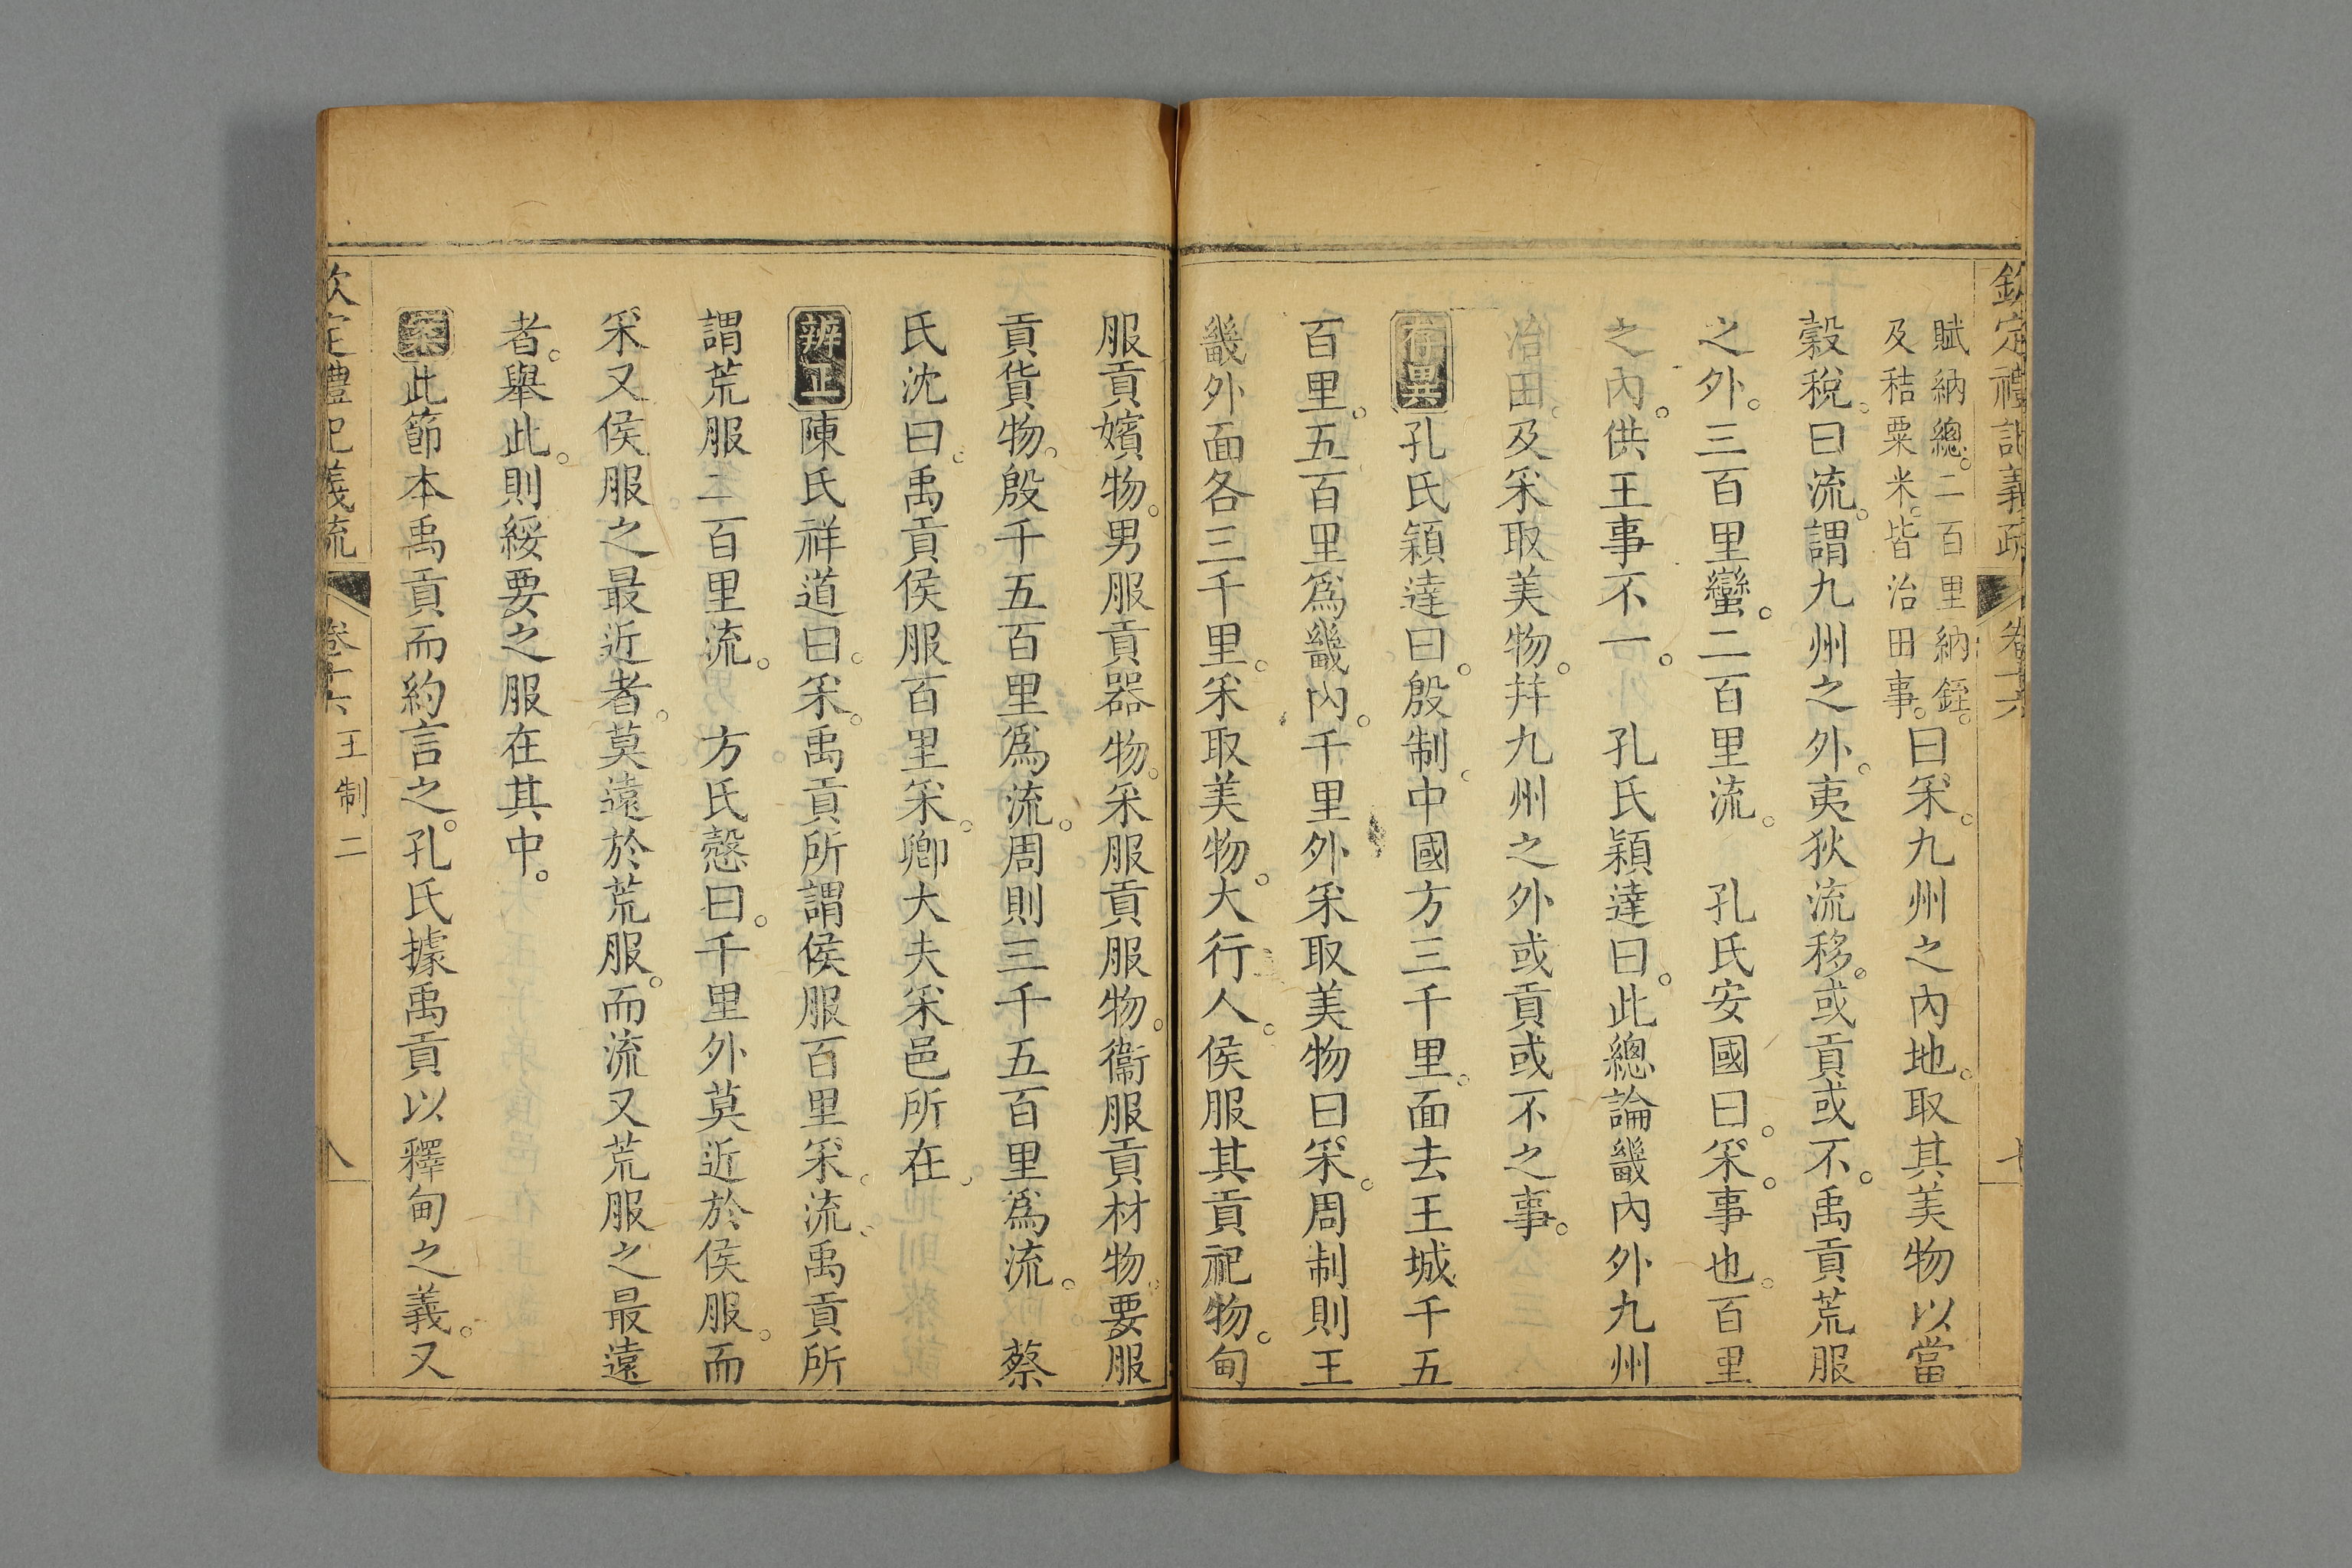 欽定禮記義疏 卷十六 七
賦納總。二百里納銍。
及秸粟米。皆治田事。
曰采。九州之內地。取其美物以當
穀稅。曰流。謂九州之外。夷狄流移。或貢或不。禹貢荒服
之外。三百里蠻。二百里流。 孔氏安國曰。采。事也。百里
之內。供王事不一。 孔氏穎達曰。此總論畿內外九州
治田。及采取美物。幷九州之外或貢或不之事。
存異孔氏穎達曰。殷制。中國方三千里。面去王城千五
百里。五百里爲畿內。千里外采取美物曰采。周制則王
畿外面各三千里。采取美物。大行人。侯服其貢祀物。甸
服貢嬪物。男服貢器物。采服貢服物。衞服貢材物。要服
貢貨物。殷千五百里爲流。周則三千五百里爲流。 蔡
氏沈曰。禹貢侯服百里采。卿大夫采邑所在。
辨正陳氏祥道曰。采。禹貢所謂侯服百里采。流。禹貢所
謂荒服二百里流。 方氏慤曰。千里外莫近於侯服。而
采又侯服之最近者。莫遠於荒服。而流又荒服之最遠
者。舉此。則綏要之服在其中。
案此節本禹貢而約言之。孔氏據禹貢以釋甸之義。又
欽定禮記義疏 卷十六 王制二 八